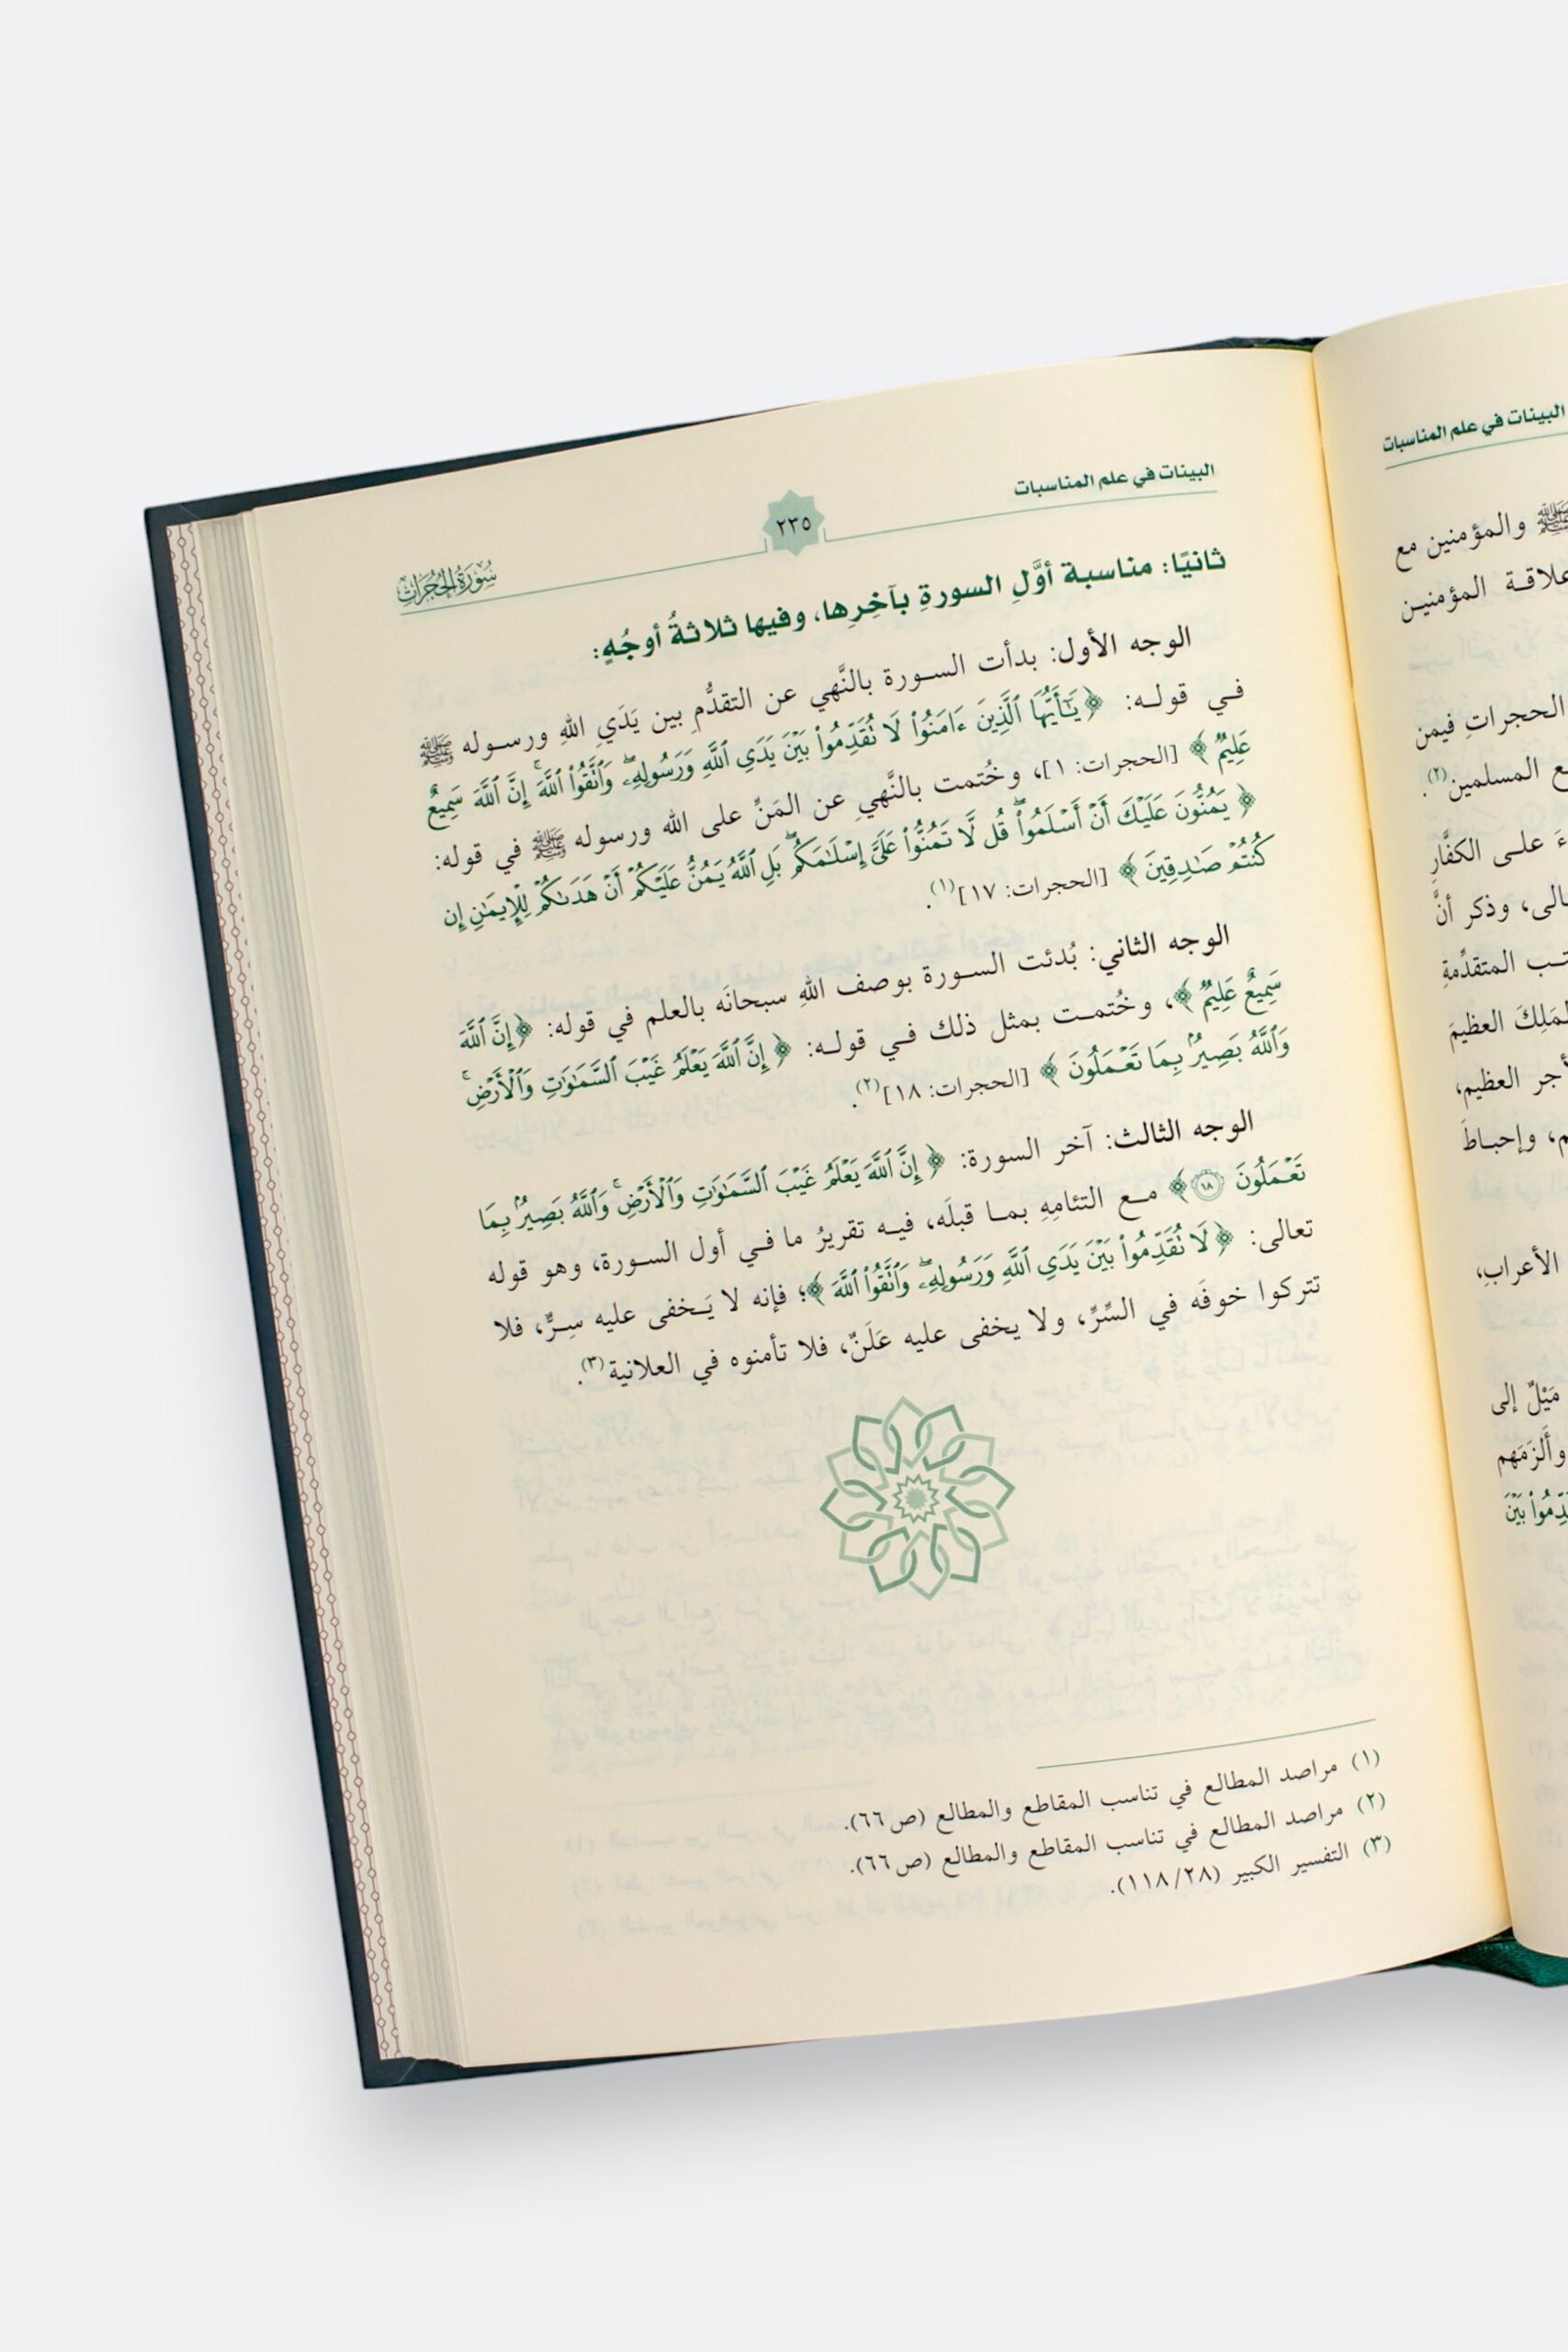 البينات في علم المناسبات
ﷺ والمؤمنين مع
علاقة المؤمنين
الحجراتِ فيمن
المسلمين(٢).
على الكفَّارِ
وذكر أنَّ
المتقدِّمةِ
العظيمَ
العظيم،
وإحباطَ
الأعرابِ،
مَيْلٌ إلى
وألزَمَهم
بَيْنَ
البينات في علم المناسبات
٢٣٥
سُورَةُ الحُجُرَاتِ
ثانيًا: مناسبة أوَّلِ السورةِ بآخِرِها، وفيها ثلاثةُ أوجُهٍ:
الوجه الأول: بدأت السورة بالنَّهي عن التقدُّمِ بين يَدَيِ اللهِ ورسوله ﷺ
في قوله: ﴿يَٰٓأَيُّهَا ٱلَّذِينَ ءَامَنُوا۟ لَا تُقَدِّمُوا۟ بَيْنَ يَدَىِ ٱللَّهِ وَرَسُولِهِۦ ۖ وَٱتَّقُوا۟ ٱللَّهَ ۚ إِنَّ ٱللَّهَ سَمِيعٌ
عَلِيمٌ﴾ [الحجرات: ١]، وخُتمت بالنَّهيِ عن المَنِّ على الله ورسوله ﷺ في قوله:
﴿يَمُنُّونَ عَلَيْكَ أَنْ أَسْلَمُوا۟ ۖ قُل لَّا تَمُنُّوا۟ عَلَىَّ إِسْلَٰمَكُم ۖ بَلِ ٱللَّهُ يَمُنُّ عَلَيْكُمْ أَنْ هَدَىٰكُمْ لِلْإِيمَٰنِ إِن
كُنتُمْ صَٰدِقِينَ﴾ [الحجرات: ١٧](١).
الوجه الثاني: بُدئت السورة بوصف اللهِ سبحانَه بالعلم في قوله: ﴿إِنَّ ٱللَّهَ
سَمِيعٌ عَلِيمٌ﴾، وخُتمت بمثل ذلك في قوله: ﴿إِنَّ ٱللَّهَ يَعْلَمُ غَيْبَ ٱلسَّمَٰوَٰتِ وَٱلْأَرْضِ ۚ
وَٱللَّهُ بَصِيرٌۢ بِمَا تَعْمَلُونَ﴾ [الحجرات: ١٨](٢).
الوجه الثالث: آخر السورة: ﴿إِنَّ ٱللَّهَ يَعْلَمُ غَيْبَ ٱلسَّمَٰوَٰتِ وَٱلْأَرْضِ ۚ وَٱللَّهُ بَصِيرٌۢ بِمَا
تَعْمَلُونَ ١٨﴾ مع التئامِهِ بما قبلَه، فيه تقريرُ ما في أول السورة، وهو قوله
تعالى: ﴿لَا تُقَدِّمُوا۟ بَيْنَ يَدَىِ ٱللَّهِ وَرَسُولِهِۦ ۖ وَٱتَّقُوا۟ ٱللَّهَ﴾؛ فإنه لا يَخفى عليه سِرٌّ، فلا
تتركوا خوفَه في السِّرِّ، ولا يخفى عليه عَلَنٌ، فلا تأمنوه في العلانية(٣).
(١) مراصد المطالع في تناسب المقاطع والمطالع (ص٦٦).
(٢) مراصد المطالع في تناسب المقاطع والمطالع (ص٦٦).
(٣) التفسير الكبير (٢٨/ ١١٨).